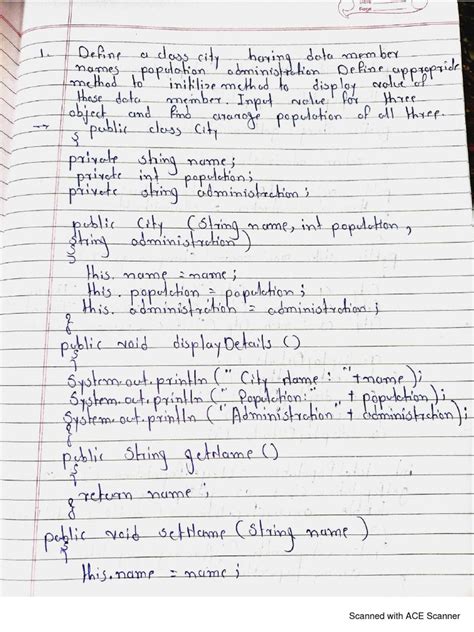 Page
1. Define a class city having data member
names population administration Define appropride
method to initilize method to display value of
these data member. Input value for three
object and find avarage population of all three.
→ public class City
{
private string name;
private int population;
private string administration;
public City (String name, int population,
string administration)
{
this. name = name;
this. population = population;
this. administration = administration;
}
public void displayDetails ()
{
System.out.println (" City Name : "+name);
System.out.println (" Population:" + population);
System.out.println (" Administration" + administration);
}
public String getName ()
{
return name ;
}
public void setName (String name )
{
this.name = name ;
Scanned with ACE Scanner